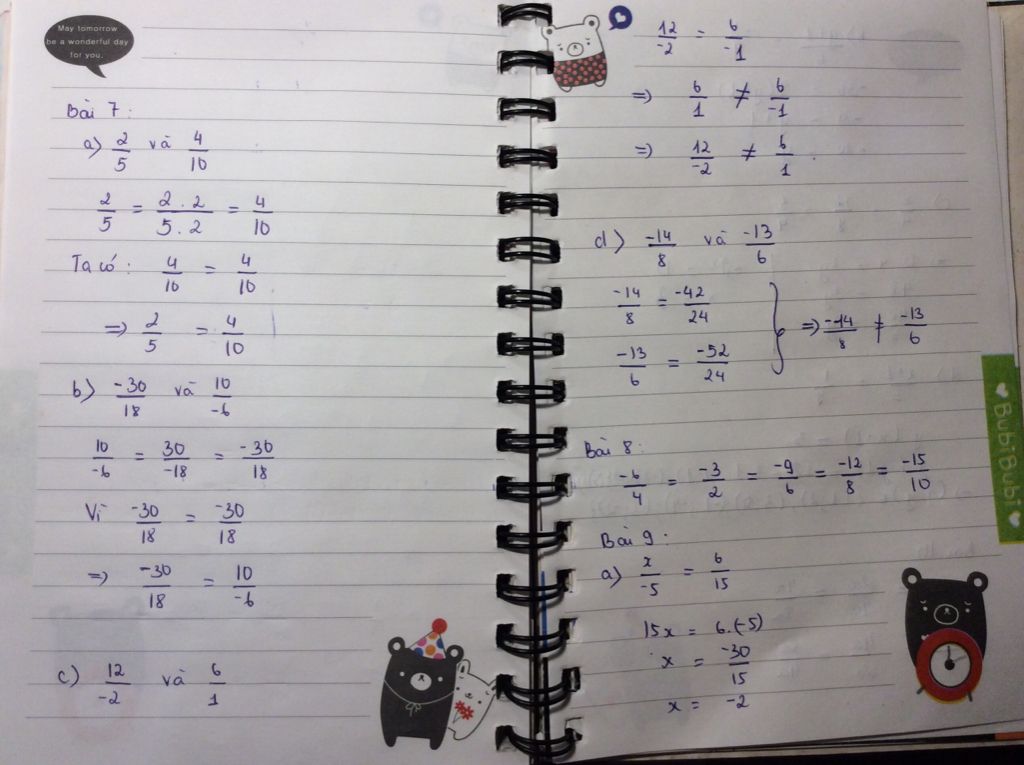 May tomorrow
be a wonderful day
for you.
Bài 7:
a) 2/5 và 4/10
2/5 = 2.2/5.2 = 4/10
Ta có: 4/10 = 4/10
=> 2/5 = 4/10
b) -30/18 và 10/-6
10/-6 = 30/-18 = -30/18
Vì -30/18 = -30/18
=> -30/18 = 10/-6
c) 12/-2 và 6/1
12/-2 = 6/-1
=> 6/1 ≠ 6/-1
=> 12/-2 ≠ 6/1.
d) -14/8 và -13/6
-14/8 = -42/24
-13/6 = -52/24
} => -14/8 ≠ -13/6
Bài 8:
-6/4 = -3/2 = -9/6 = -12/8 = -15/10
Bài 9:
a) x/-5 = 6/15
15x = 6.(-5)
x = -30/15
x = -2
BubiBubi